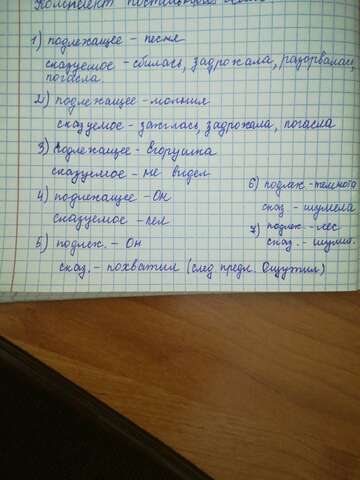 Комплект постельного
1) подлежащее - песня
сказуемое - сбилась, задрожала, разорвалась,
погасла
2) подлежащее - молния
сказуемое - зажглась, задрожала, погасла
3) подлежащее - Егорушка
сказуемое - не видел
4) подлежащее - Он
сказуемое - пел
5) подлеж. - Он
сказ. - похватил (след предл. Ощутил)
6) подлеж - темнота
сказ - шумела
7) подлеж - лес
сказ. - шумит.